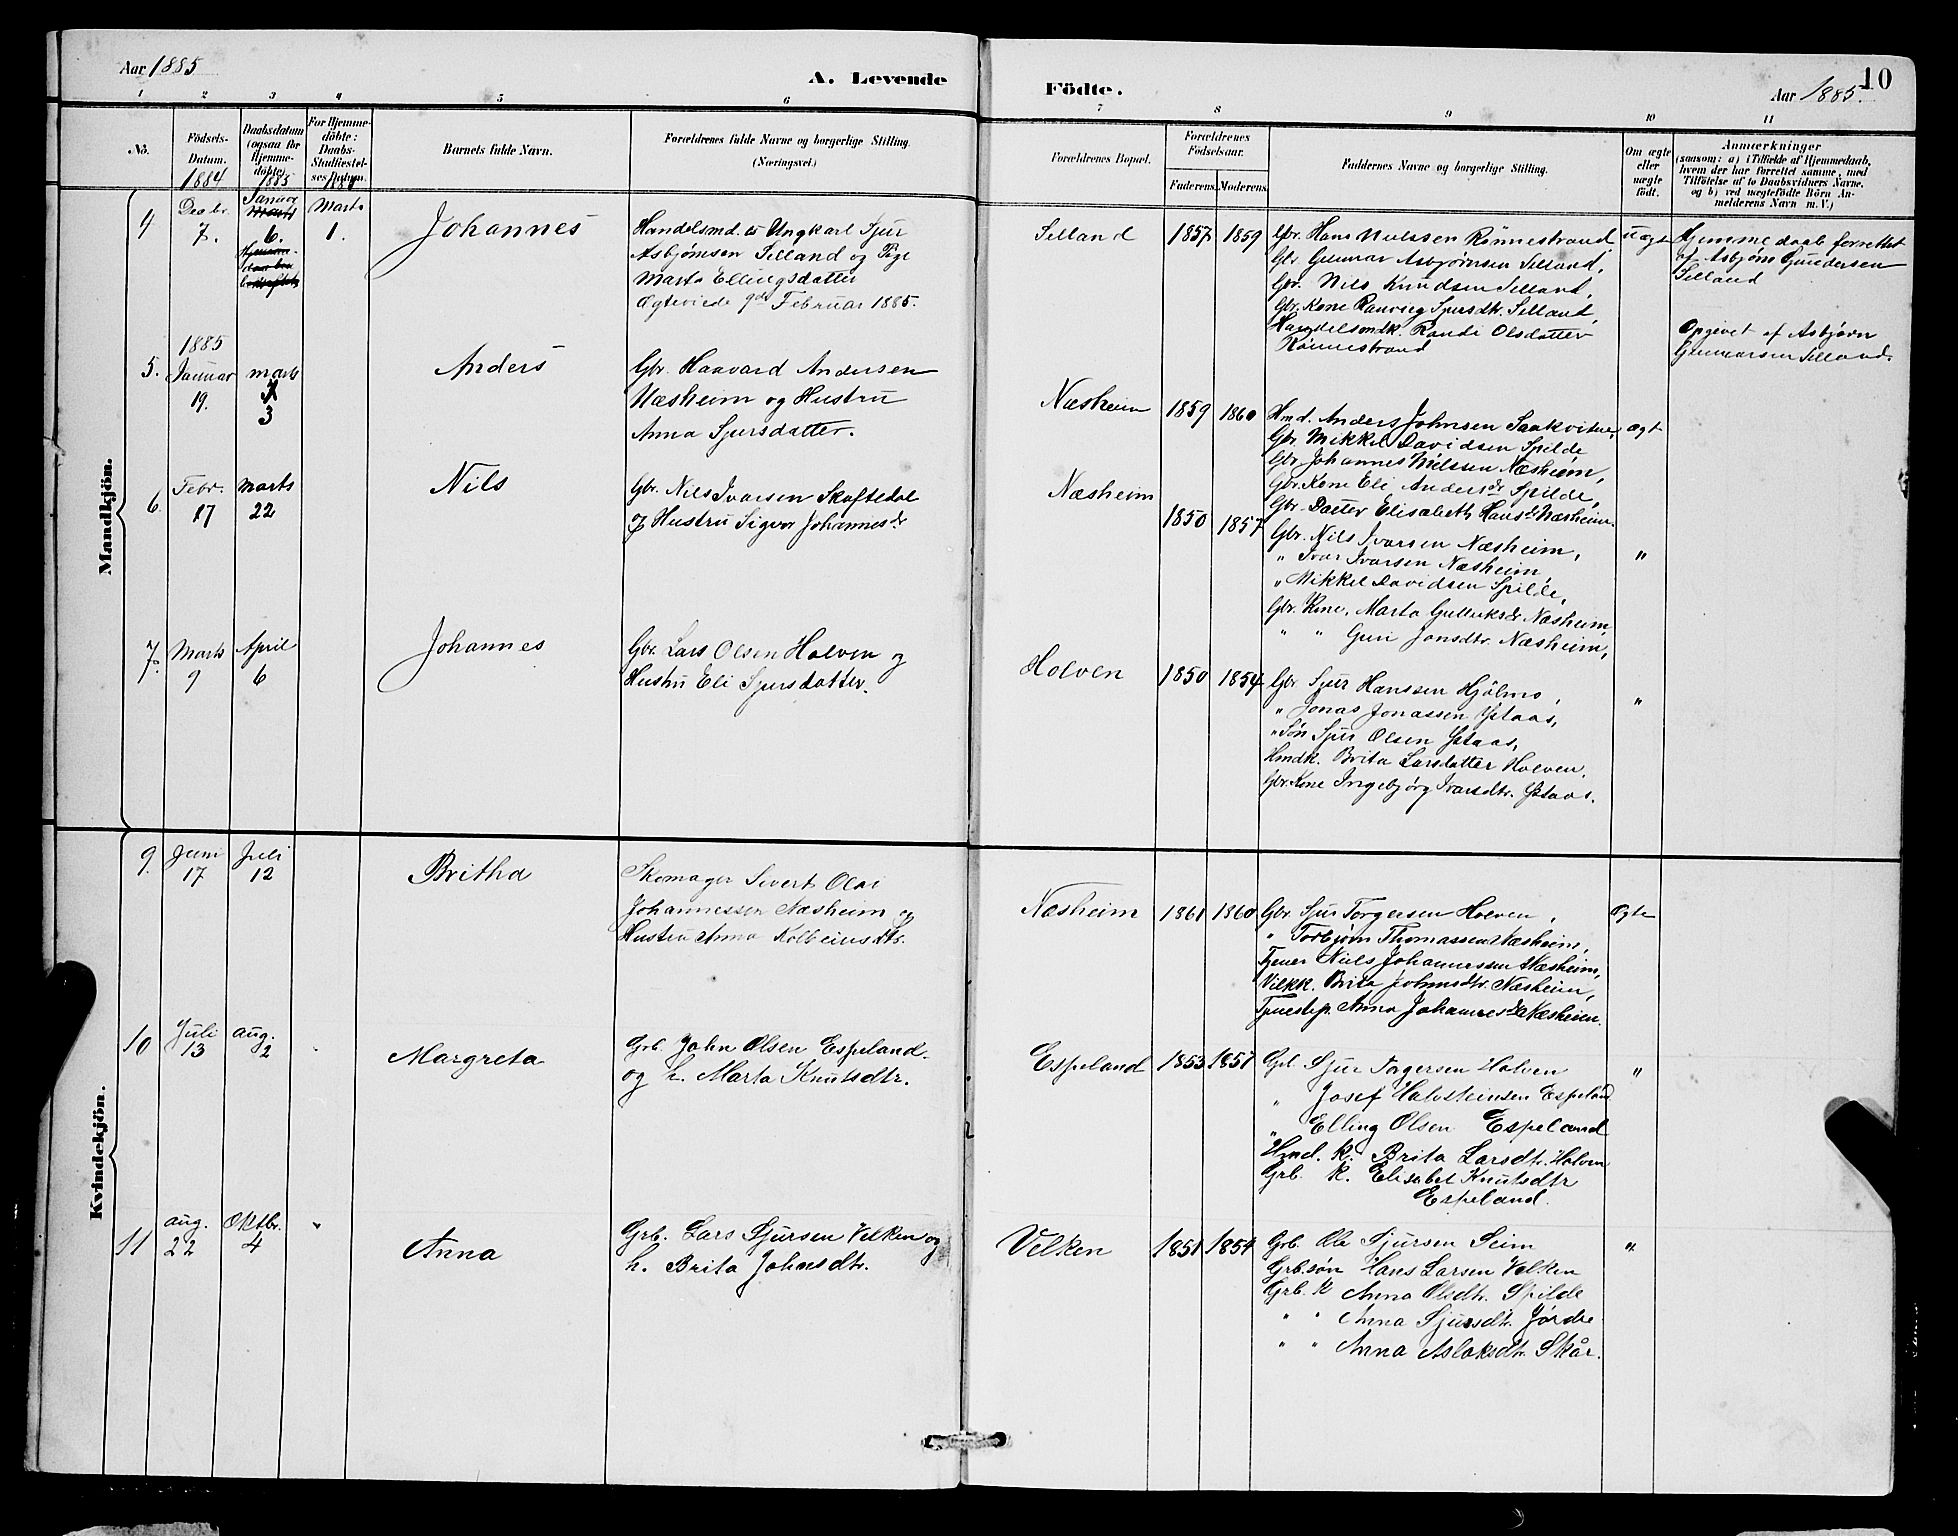 Aar 1885
A. Levende
Födte.
Aar 1885.
10
1 2 3 4 5 6 7 8 9 10 11
No.
Födsels-
Datum.
1884
Daabsdatum
(ogsaa for
Hjemme-
döbte)
1885
For Hjemme-
döbte:
Daabs-
Stadfæstel-
ses Datum.
1885
Barnets fulde Navn.
Forældrenes fulde Navne og borgerlige Stilling.
(Næringsvei.)
Forældrenes Bopæl.
Forældrenes
Födselsaar.
Faderens. Moderens.
Faddernes Navne og borgerlige Stilling.
Om ægte
eller
uægte
födt.
Anmærkninger
(saasom: a) i Tilfælde af Hjemmedaab,
hvem der har forrettet samme, med
Tilföielse af to Daabsvidners Navne,
og b) ved uægtefödte Börn An-
melderens Navn m. V.)
Mandkjön.
4
Decbr.
7.
Januar
Marts
6.
Marts
1.
Johannes
Handelsmd. Ungkarl Sjur
Asbjørnsen Selland og Pige
Marta Ellingsdatter
Ægteviede 9de Februar 1885.
Selland
1857 1859
Gbr. Hans Nielssen Rønnestrand
Gbr. Gunnar Asbjørnsen Selland,
Gbr. Nils Knudsen Selland,
Gbr. Kone Ranveig Sjursdtr. Selland,
Handelsmdk. Randi Olsdatter
Rønnestrand
uægt
Hjemmedaab forrettet
af Asbjørn Gundersen
Selland
Opgivet af Asbjørn
Gunnarsen Selland.
5.
1885
Januar
19.
Marts
3
Anders
Gbr. Haavard Andersen
Næsheim og Hustru
Anna Sjursdatter.
Næsheim
1859 1860
Hmd. Anders Johnsen Saakvitne,
Gbr. Mikkel Davidsen Spilde
Gbr. Johannes Nielssen Næsheim,
Gbr. Kone Eli Andersdr Spilde,
Gbr. Datter Elisabeth Hansdr Næsheim.
ægt
6.
Febr.
17
Marts
22
Nils
Gbr. Nils Ivarsen Skaftedal
og Hustru Sigvor Johannesdr
Næsheim
1850 1857
Gbr. Nils Ivarsen Næsheim,
" Ivar Ivarsen Næsheim
" Mikkel Davidsen Spilde,
Gbr. Kone, Marta Gulleiksdr Næsheim,
" " Guri Jonsdtr. Næsheim,
"
7.
Marts
9
April
6
Johannes
Gbr. Lars Olsen Holven og
Hustru Eli Sjursdatter.
Holven
1850 1854
Gbr Sjur Hanssen Hjølmo,
" Jonas Jonassen Ystaas,
" Søn Sjur Olsen Ystaas,
Hmdk. Brita Larsdatter Holven.
Gbr. Kone Ingebjørg Ivarsdtr. Ystaas.
"
Kvindekjön.
9.
Juni
17
Juli
12
Britha
Skomager Sivert Olai
Johannessen Næsheim og
Hustru Anna Kolbeinsdtr.
Næsheim
1861 1860
Gbr Sjur Torgersen Holven,
" Torbjørn Thomassen Næsheim,
Tjener Niels Johannessen Næsheim,
Brita Johnsdtr. Næsheim,
Anna Johannesdr Næsheim.
Ægte
10
Juli
13
Aug.
2
Margreta
Grb. John Olsen Espeland
og h. Marta Knutsdtr.
Espeland
1853 1857
Sjur Torgersen Holven
" Josef Halvsteinsen Espeland
" Elling Olsen Espeland
Hmd. K. Brita Larsdtr. Holven
Grb. K. Elisabet Knutsdtr
Espeland.
"
11
Aug.
22
Oktbr.
4
"
Anna
Grb. Lars Sjursen Velken og
h. Brita Johnsdtr.
Velken
1851 1854
Grb. Ole Sjursen Seim
Grb.søn Hans Larsen Velken
Grb. K Anna Olsdtr. Spilde
" " Anna Sjursdtr. Jørdre
" " Anna Aslaksdtr. Skår.
"